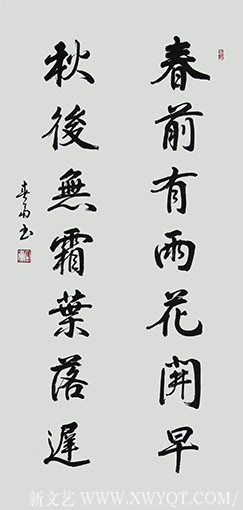 春前有雨花開早
秋後無霜葉落遲
新文艺 WWW.XWYQT.COM/